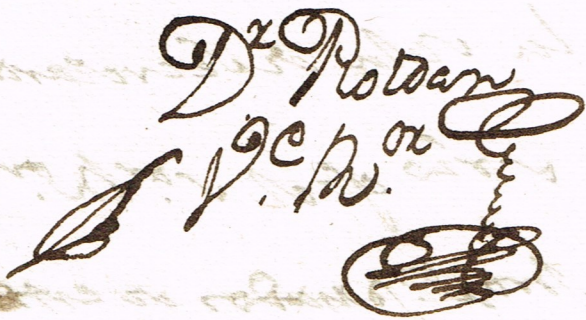 Dr Roldan
V.e R.or